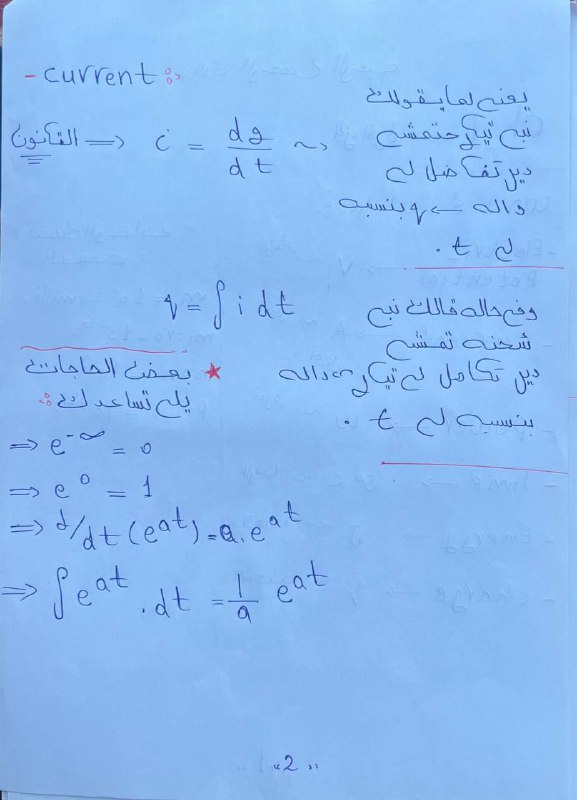 - current :
يعني لما يقولك
نبي تيار حتمشي
دير تفاضل لي
داله ← q بنسبه
لي t .
القانون ⇒ i = dq/dt ⇝
q = ∫ i dt
وفي حاله قالك نبي
شحنه تمشي
دير تكامل لي تيار داله
بنسبه لي t .
★ بعض الحاجات
يلي تساعدك :
⇒ e^-∞ = 0
⇒ e^0 = 1
⇒ d/dt (e^at) = a. e^at
⇒ ∫ e^at . dt = 1/a e^at
«2»